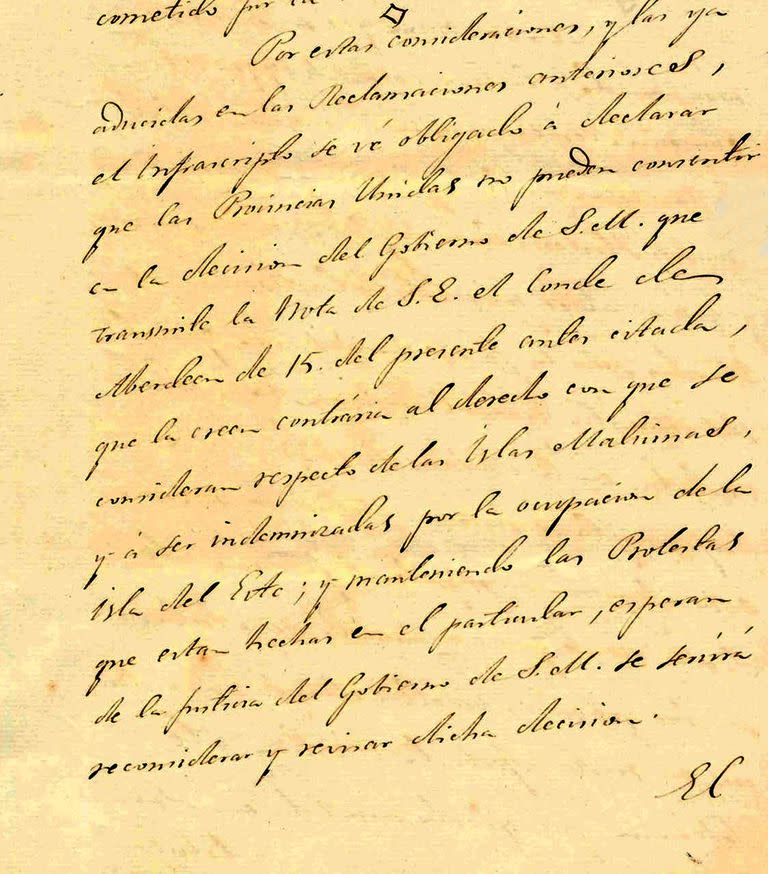 cometido por la
Por estas consideraciones, y las ya
aducidas en las Reclamaciones anteriores,
el Infrascripto se vé obligado á declarar
que las Provincias Unidas no pueden consentir
en la decision del Gobierno de S.M. que
transmite la Nota de S.E. el Conde de
Aberdeen de 15. del presente antes citada,
que la creen contrária al derecho con que se
consideran respecto de las Islas Malvinas,
y á ser indemnizadas por la ocupacion de la
isla del Este; y manteniendo las Protestas
que estan hechas en el particular, esperan
de la justicia del Gobierno de S.M. se servirá
reconsiderar y revisar dicha decision.
El